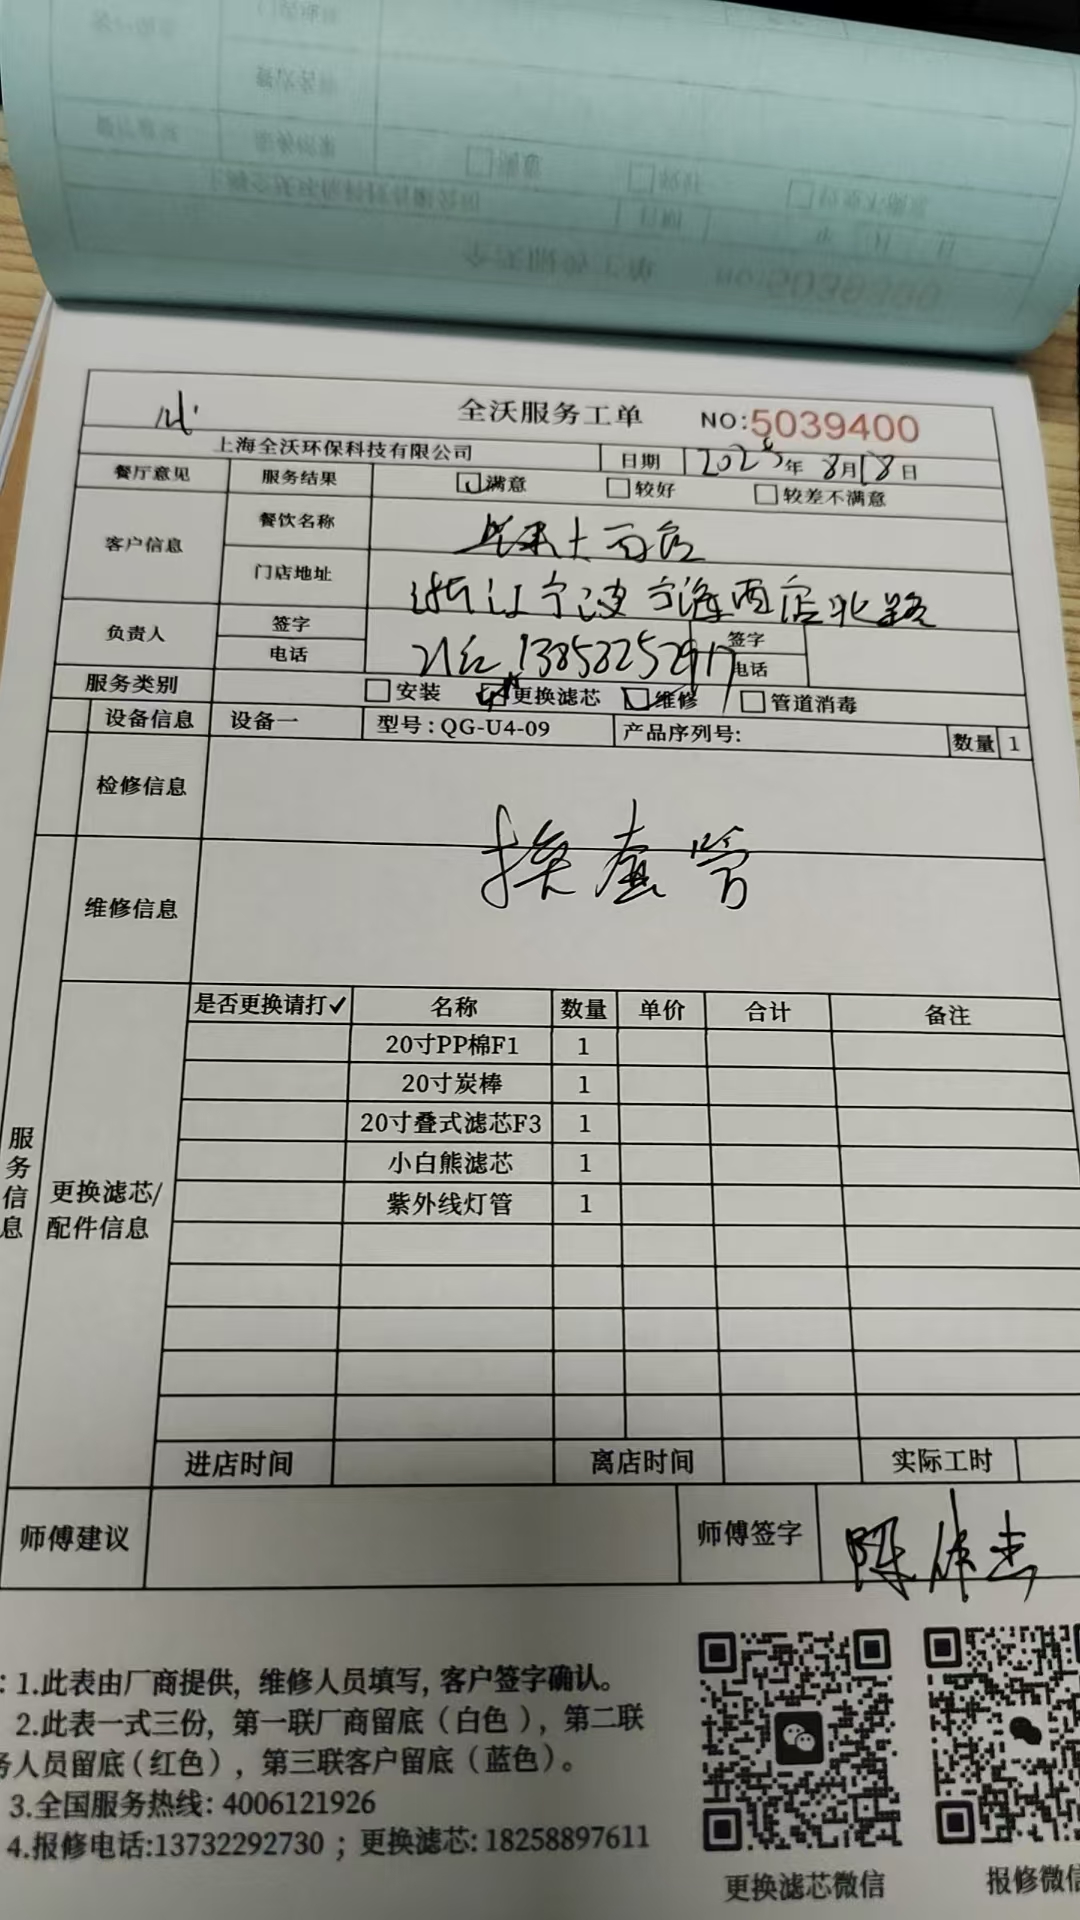 全沃服务工单 NO:5039400
上海全沃环保科技有限公司 日期 2025年8月18日
餐厅意见 服务结果 满意 较好 较差不满意
客户信息 餐饮名称
门店地址 浙江宁波宁海西店北路
负责人 签字 签字
电话 电话
服务类别 安装 更换滤芯 维修 管道消毒
设备信息 设备一 型号:QG-U4-09 产品序列号: 数量 1
检修信息
换套管
维修信息
服务信息
更换滤芯/配件信息
是否更换请打✓ 名称 数量 单价 合计 备注
20寸PP棉F1 1
20寸炭棒 1
20寸叠式滤芯F3 1
小白熊滤芯 1
紫外线灯管 1
进店时间 离店时间 实际工时
师傅建议 师傅签字
: 1.此表由厂商提供, 维修人员填写, 客户签字确认。
2.此表一式三份, 第一联厂商留底(白色), 第二联
务人员留底(红色), 第三联客户留底(蓝色)。
3.全国服务热线: 4006121926
4.报修电话:13732292730 ; 更换滤芯: 18258897611
更换滤芯微信 报修微信